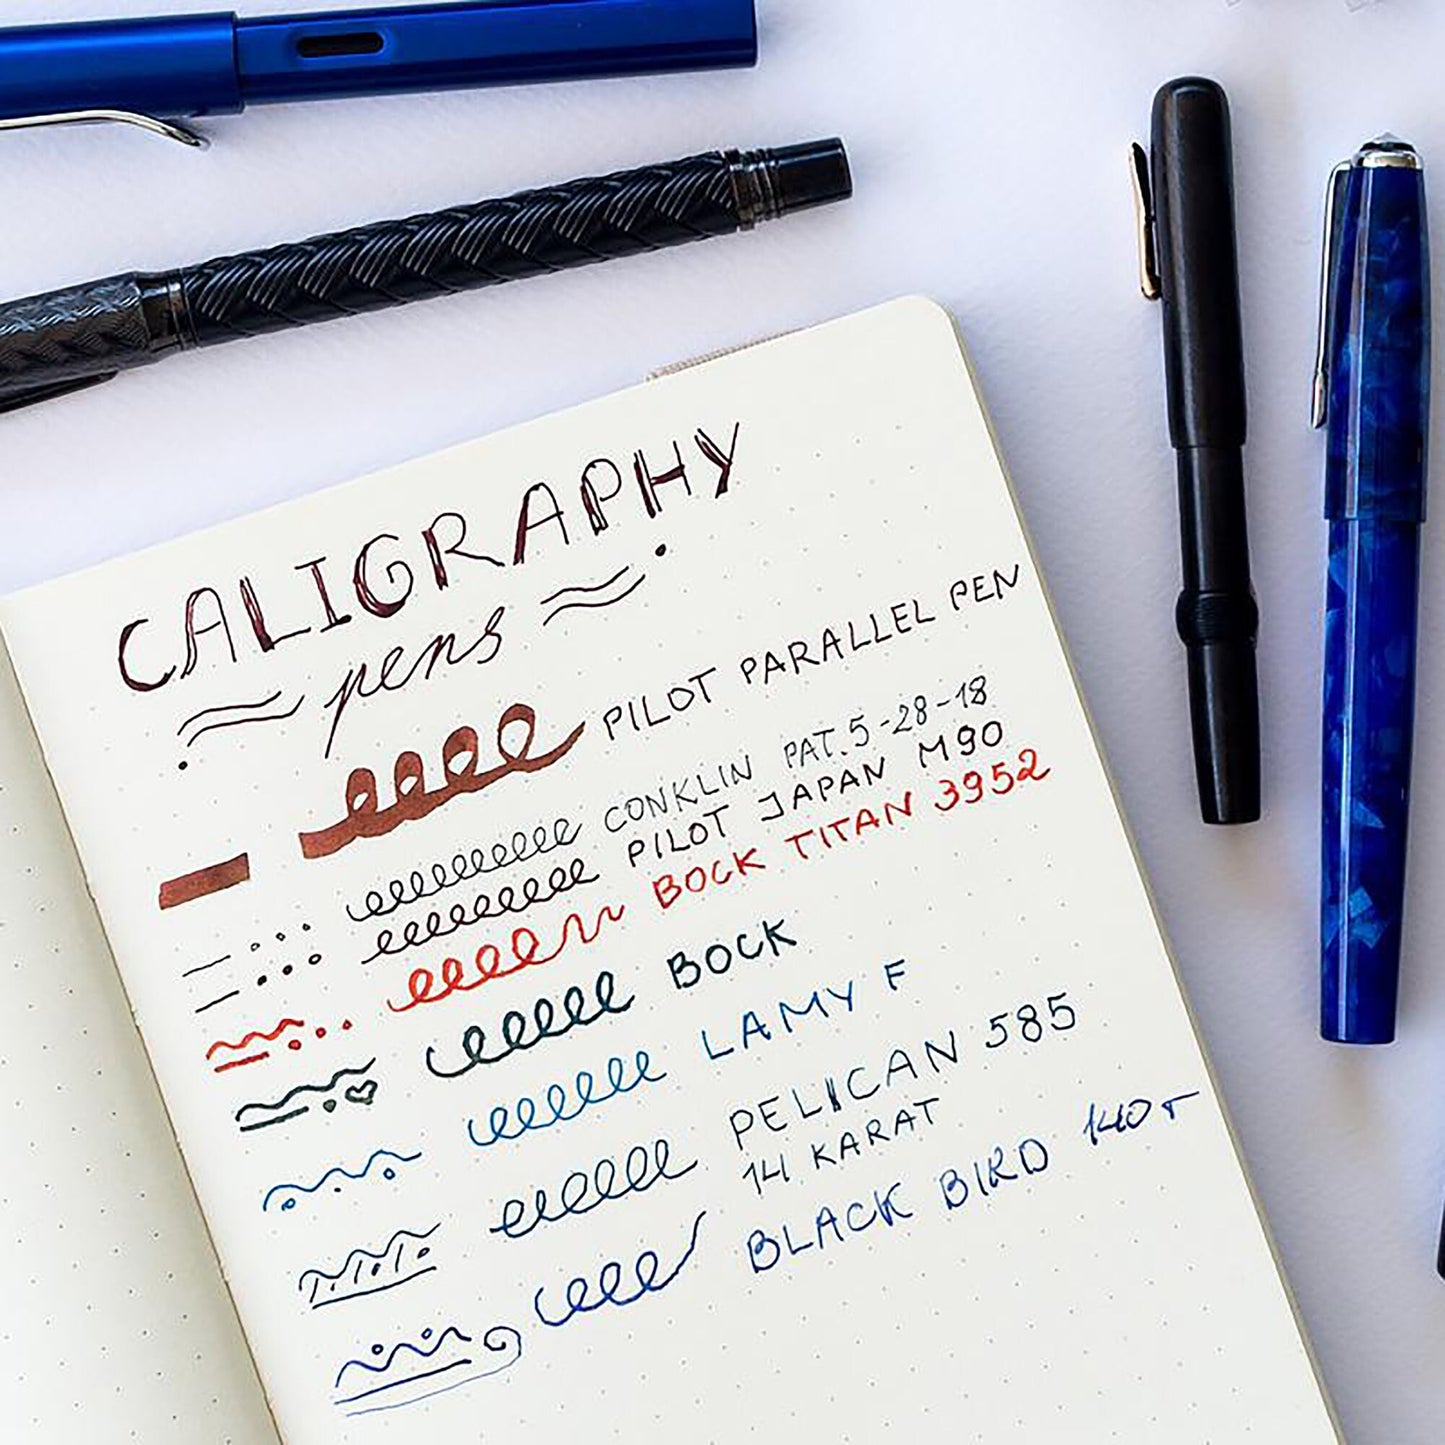 CALIGRAPHY
pens
PILOT PARALLEL PEN
CONKLIN PAT. 5-28-18
PILOT JAPAN M90
BOCK TITAN 3952
BOCK
LAMY F
PELICAN 585
14 KARAT
BLACK BIRD 140т